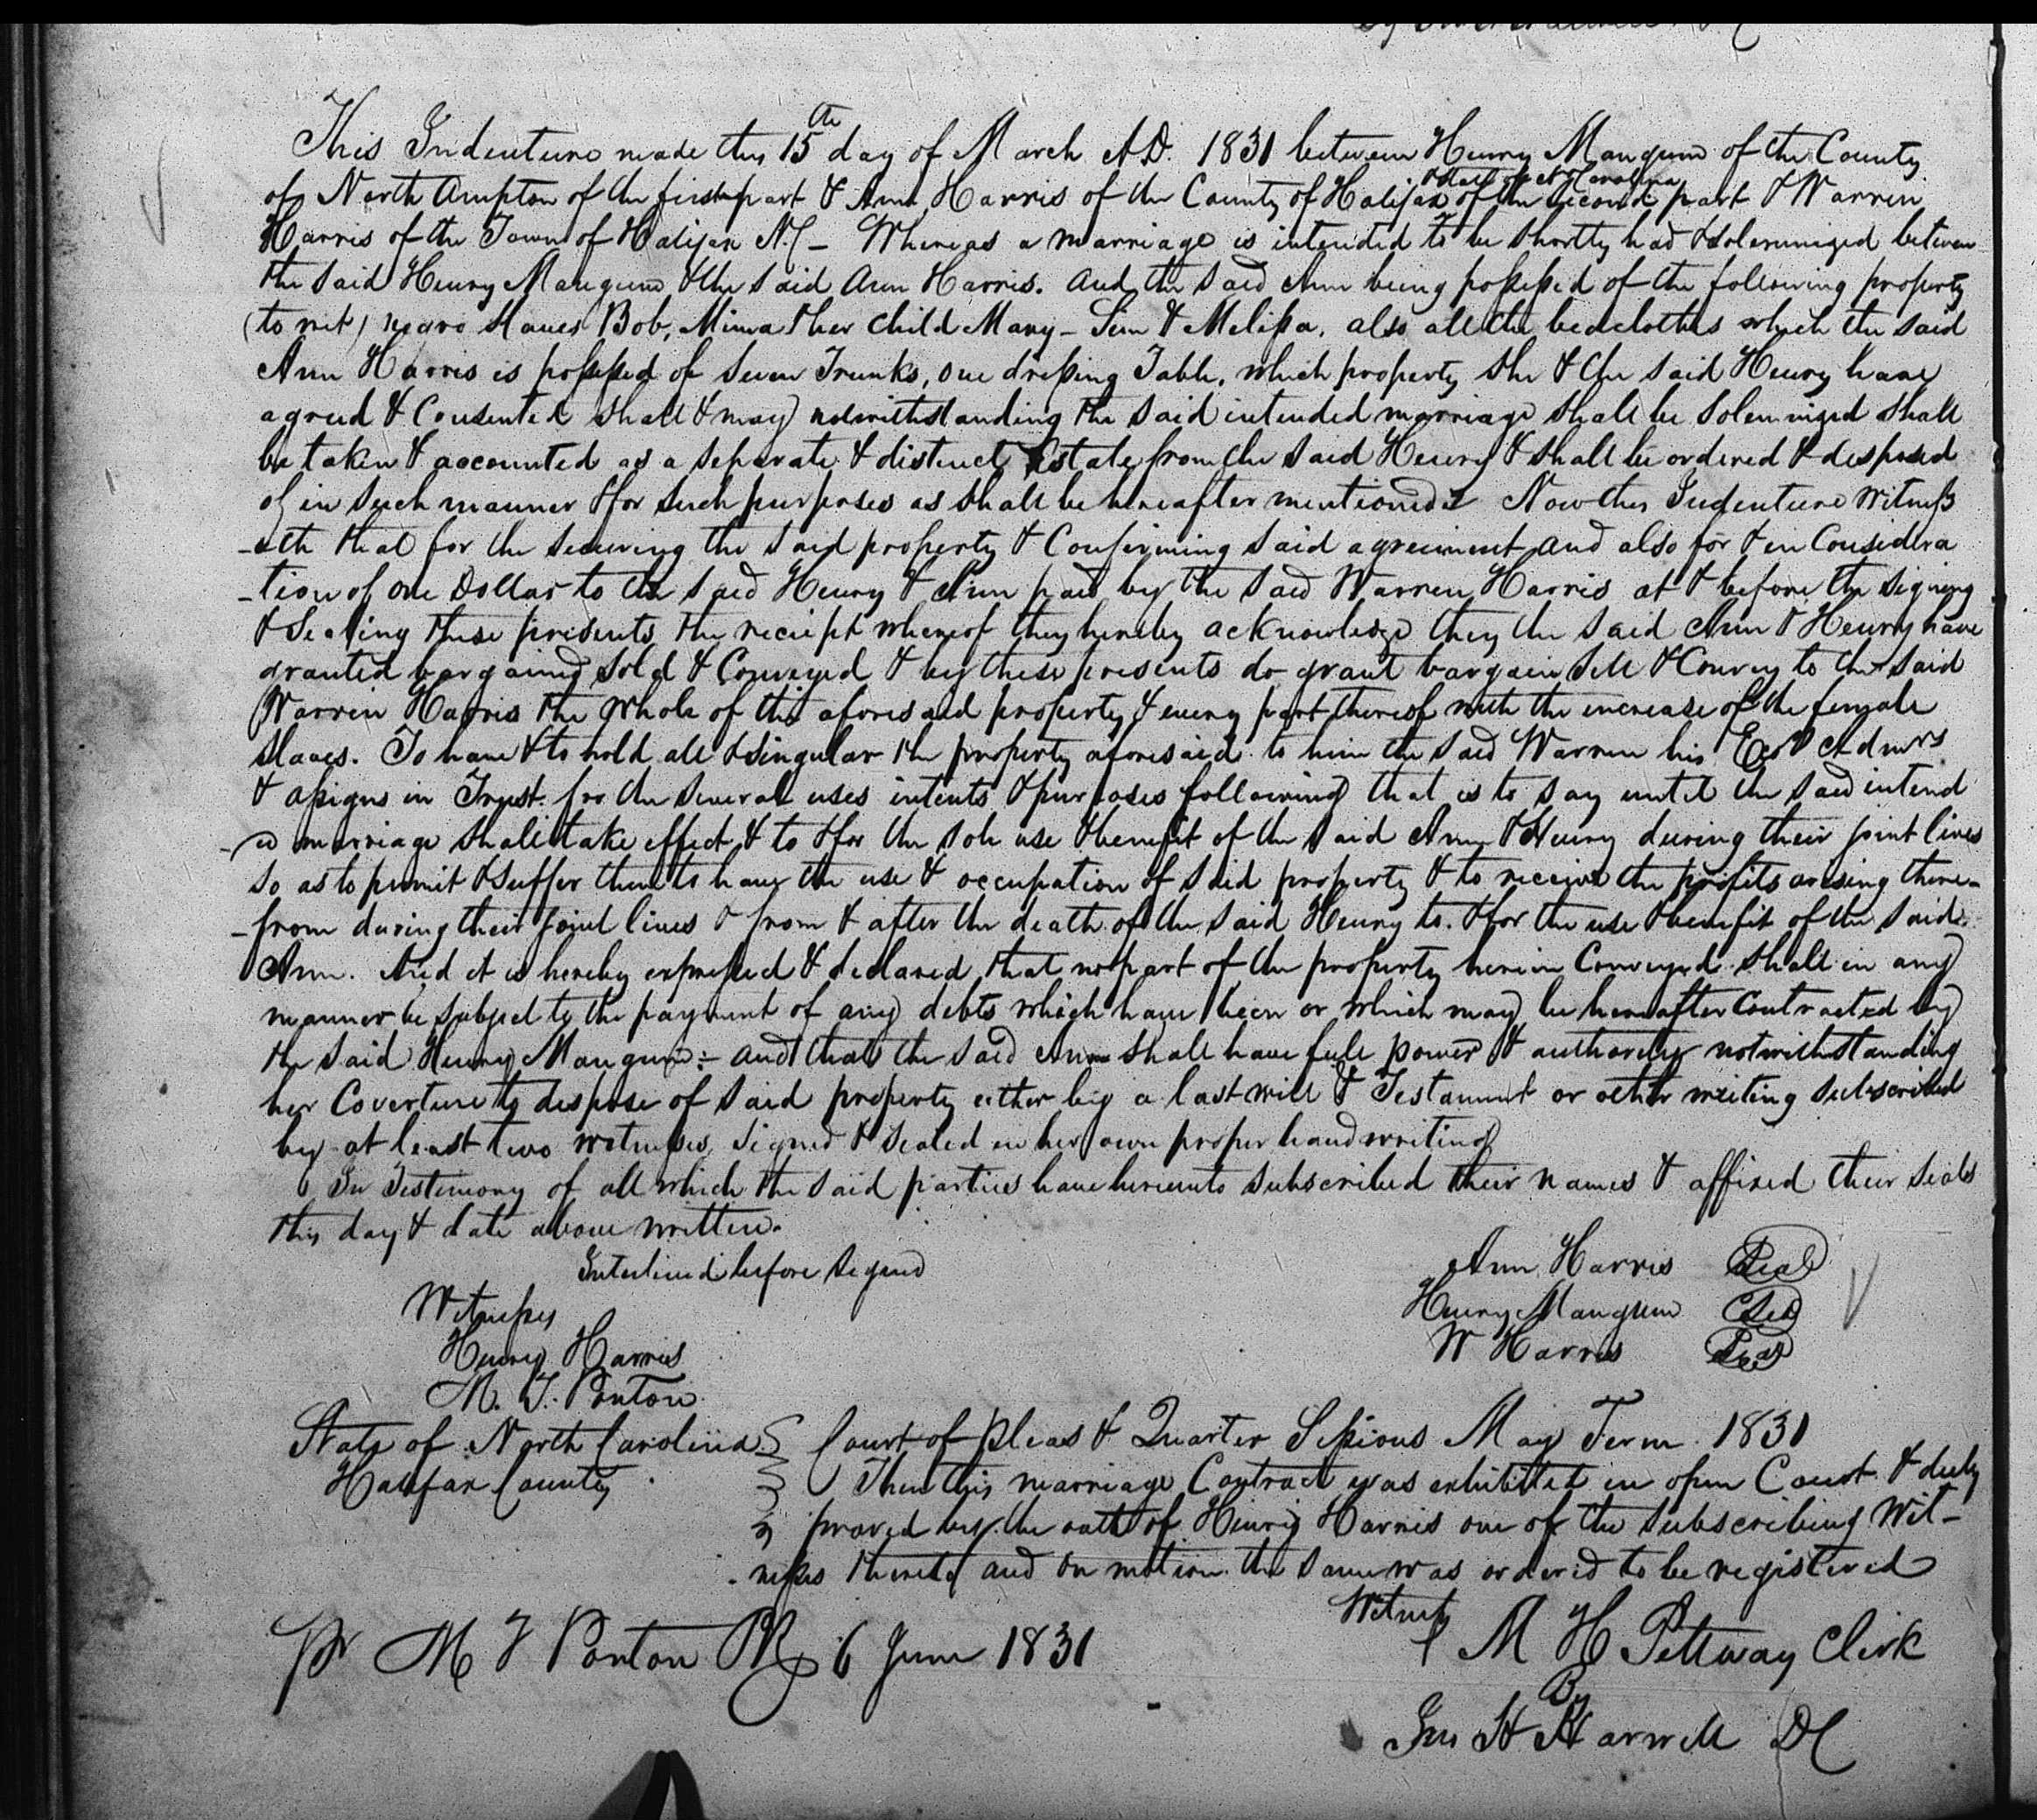 This Indenture made this 15th day of March A.D. 1831 between Henry Mangum of the County
& State of N Carolina
of North Ampton of the first part & Ann Harris of the County of Halifax of the second part & Warren
Harris of the Town of Halifax N.C – Whereas a marriage is intended to be shortly had & solemnized between
the said Henry Mangum & the said Ann Harris. And the said Ann being possessed of the following property
(to wit) negro slaves Bob, Minva & her child Mary – Sim & Melissa, also all the bedclothes which the said
Ann Harris is possessed of Seven Trunks, one dressing Table, which property she & the said Henry have
agreed & Consented shall & may notwithstanding the said intended marriage shall be Solemnized shall
be taken & accounted as a separate & distinct Estate from the said Henry & shall be ordered & desposed
of in such manner & for such purposes as shall be hereafter mentioned Now this Indenture witness
-eth that for the securing the said property & Confirming said agreement and also for & in Considera
-tion of one Dollar to the said Henry & Ann paid by the said Warren Harris at & before the signing
& Sealing these presents the reciept whereof they hereby acknowledge they the said Ann & Henry have
granted bargained sold & Conveyed & by these presents do grant bargain sell & Convey to the said
Warren Harris the whole of the aforesaid property & every part thereof with the increase of the female
slaves. To have & to hold all & singular the property aforesaid to him the said Warren his Exrs Admrs
& assigns in Trust for the several uses intents & purposes following that is to say until the said intend
-ed marriage shall take effect & to & for the sole use & benefit of the said Ann & Henry during their joint lives
so as to permit & suffer them to have the use & occupation of said property & to receive the profits arising there-
-from during their joint lives & from & after the death of the said Henry to & for the use & benefit of the said
Ann. And it is hereby expressed & declared that no part of the property herein Conveyed shall in any
manner be subject to the payment of any debts which have been or which may be hereafter Contracted by
the said Henry Mangum :- and that the said Ann shall have full power & authority notwithstanding
her Coverture to dispose of said property either by a last will & Testament or other writing subscribed
by at least two witnesses, signed & sealed in her own proper handwriting
In Testimony of all which the said parties have hereunto subscribed their names & affixed their seals
this day & date above written.
Interlined before signed
Ann Harris Seal
Witnesses
Henry Mangum Seal
Henry Harris
W Harris Seal
M. T. Ponton
State of North Carolina Court of Pleas & Quarter Sessions May Term 1831
Halifax County Then this marriage Contract was exhibited in open Court & duly
proved by the oath of Henry Harris one of the subscribing Wit-
-nesses thereto and on motion the same was ordered to be registered
Witness
Pr M T Ponton PR 6 June 1831
M H Pettway Clerk
By
Jno H Harwell DC